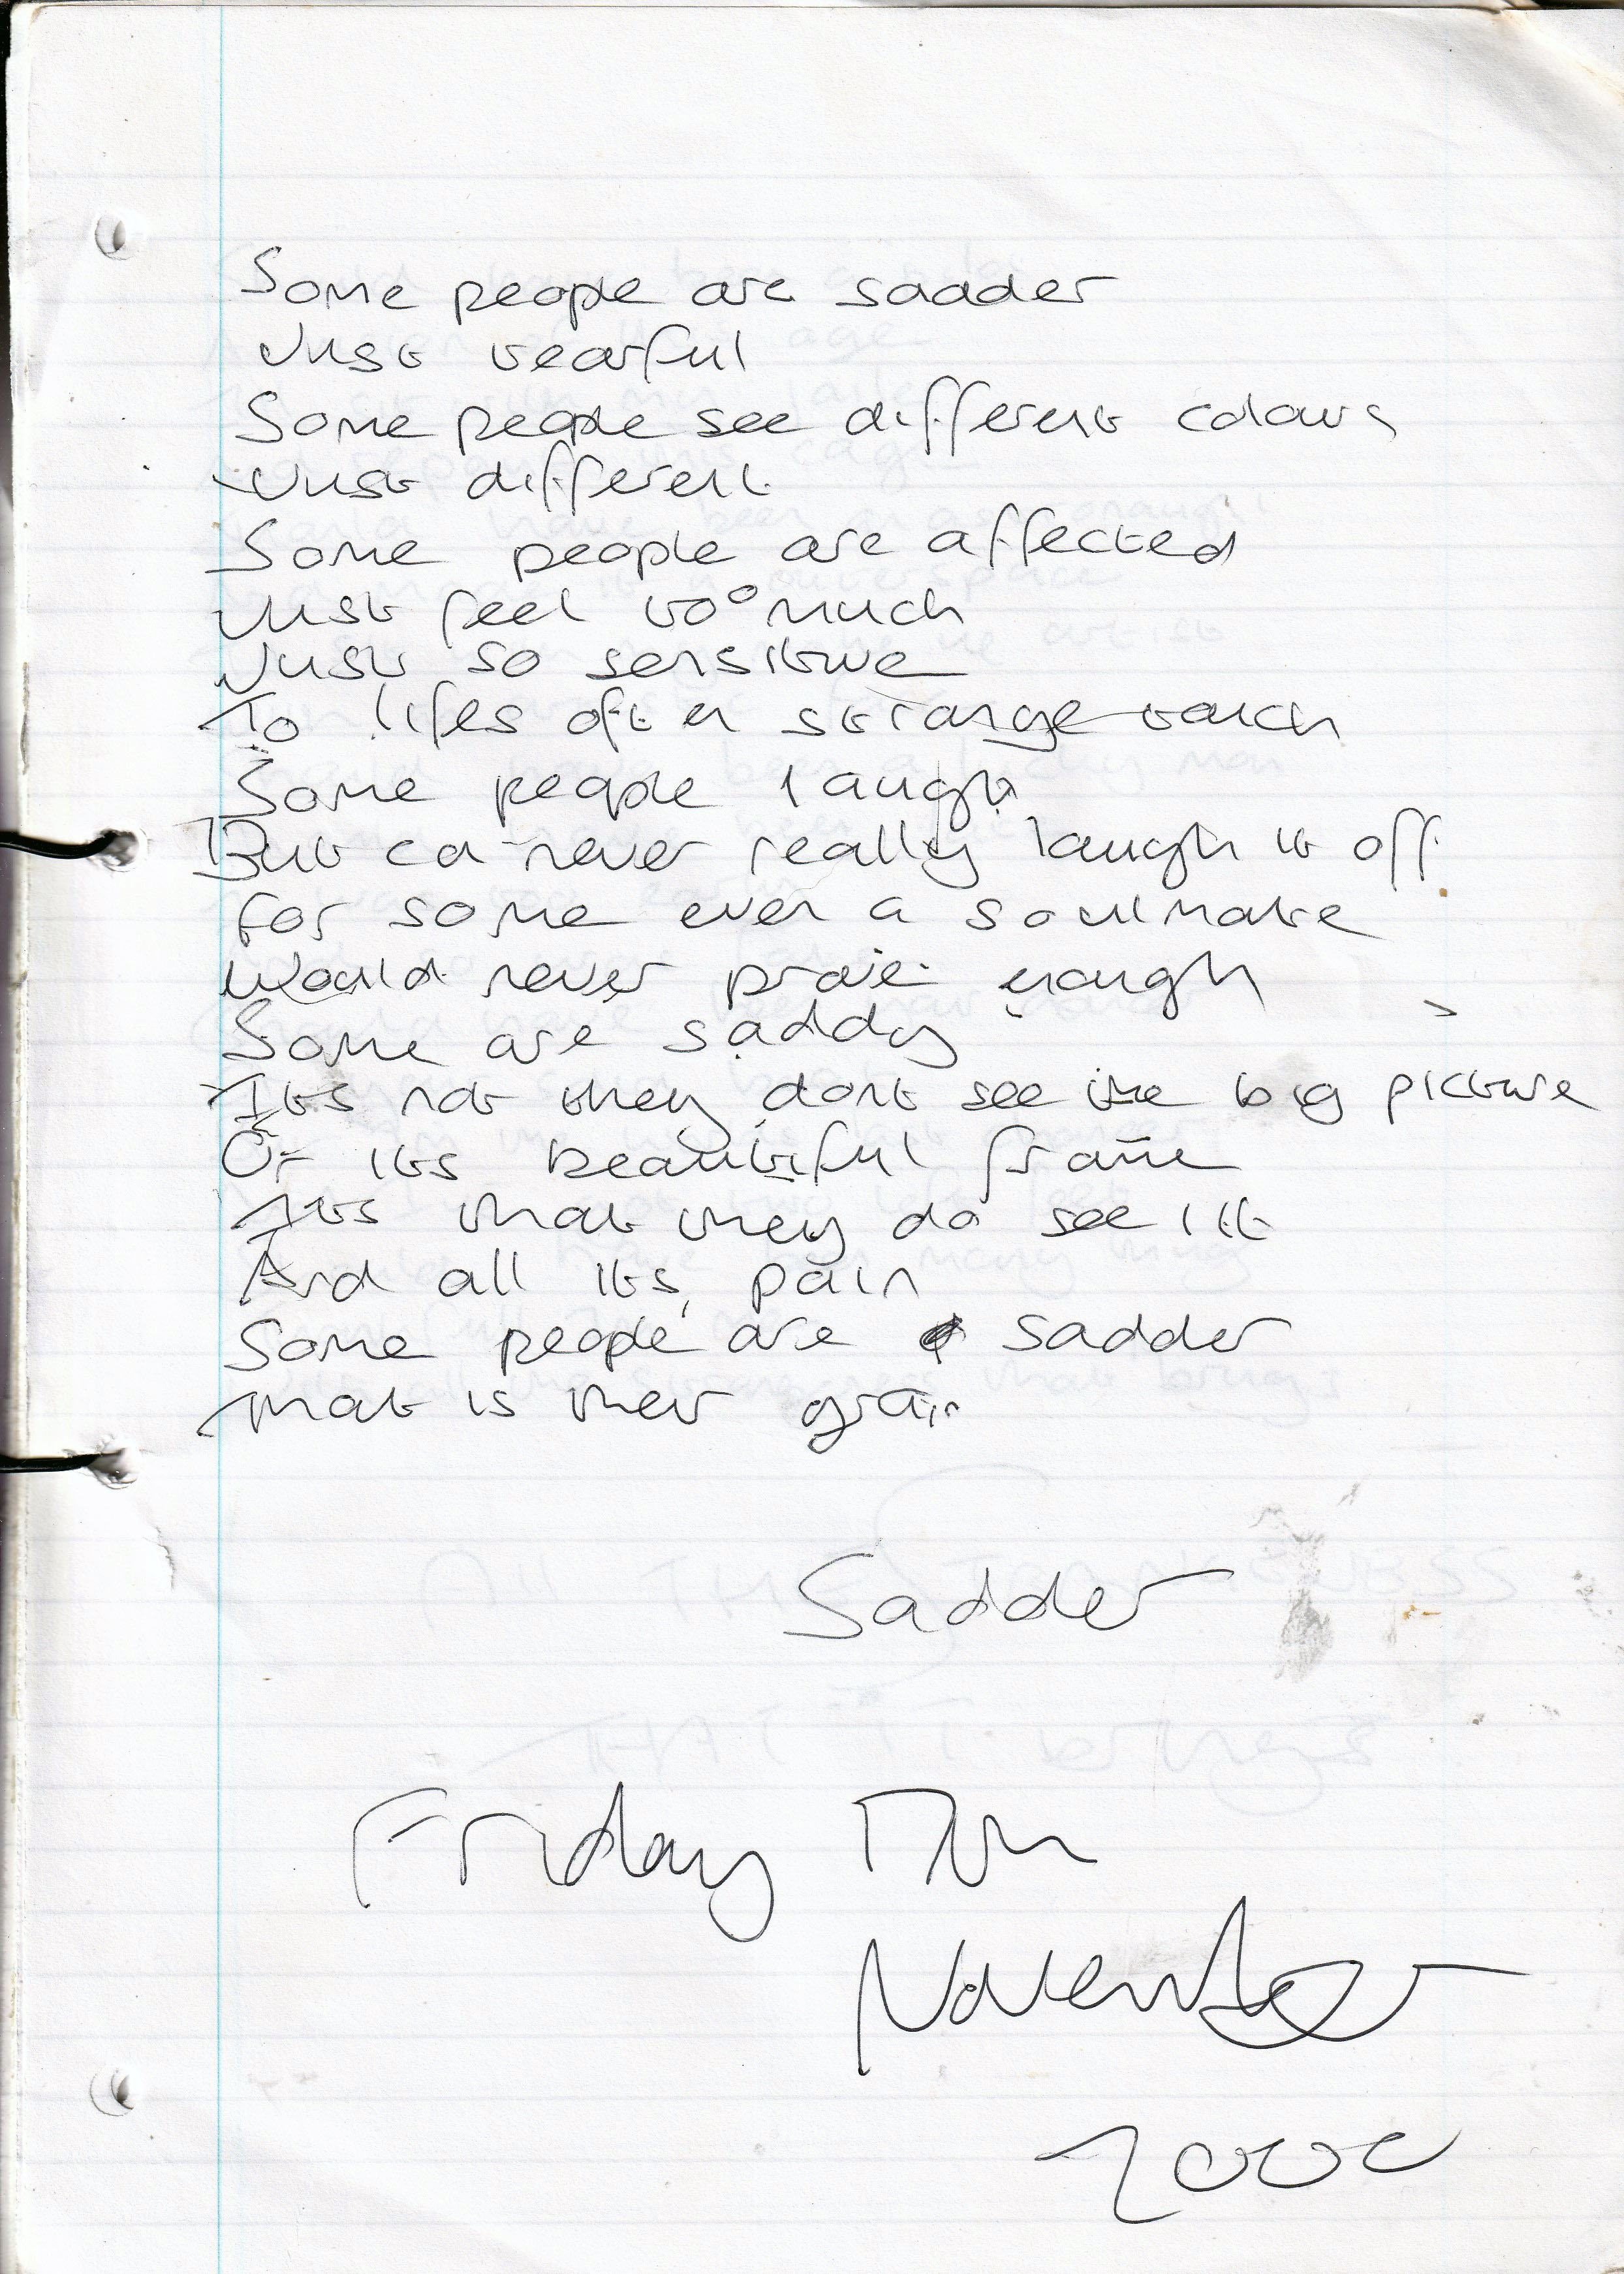 Some people are sadder
Just tearful
Some people see different colours
Just different
Some people are affected
Just feel too much
Just so sensitive
To lifes often strange touch
Some people laugh
But can never really laugh it off
For some even a soulmate
Would never prove enough
Some are saddy
Its not they dont see the big picture
Or its beautiful frame
Its that they do see it
And all its pain
Some people are sadder
That is their grain
Sadder
Friday
November
2000